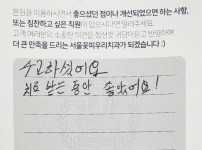 본원을 이용하시면서 좋으셨던 점이나 개선되었으면 하는 사항,
또는 칭찬하고 싶은 직원이 있으시다면 말씀해주세요.
고객 여러분의 소중한 의견을 정성껏 귀담아듣고 반영하여
더 큰 만족을 드리는 서울꽃피우리치과가 되겠습니다 :)
수고하셨어요
치료 받는 동안 좋았어요!